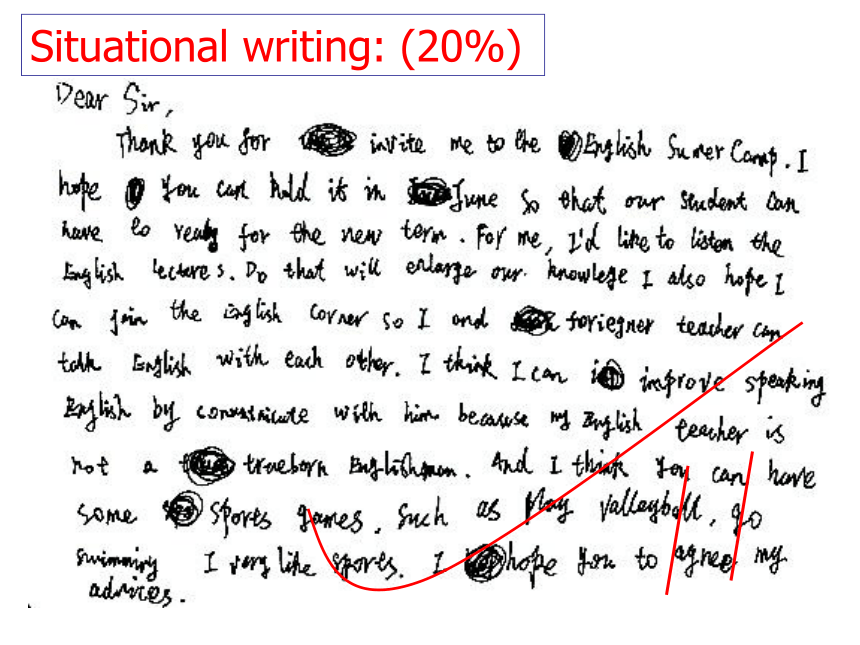 Situational writing: (20%)
Dear Sir,
Thank you for invite me to the English Sumer Camp. I
hope you can hold it in June so that our student can
have to ready for the new term. For me, I'd like to listen the
English lectures. Do that will enlarge our knowlege I also hope I
can join the English corner so I and foriegner teacher can
talk English with each other. I think I can improve speaking
English by with him because my English teacher is
not a trueborn Englishman. And I think you can have
some sports games, such as play valleyball, go
swimming I very like sports. I hope you to agree my
advices.